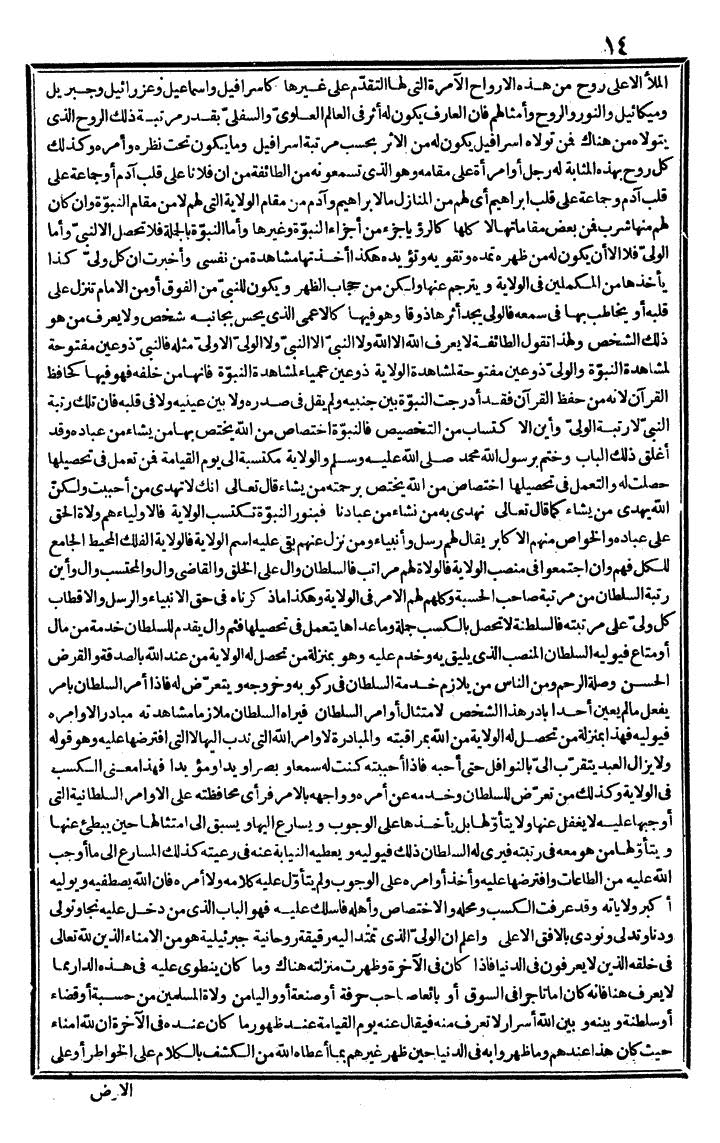 ١٤
الملأ الاعلى روح من هذه الارواح الآمرة التى لها التقدّم على غيرها كاسرافيل واسماعيل وعزرائيل وجبريل
وميكائيل والنور والروح وأمثالهم فان العارف يكون له أثر فى العالم العلوىّ والسفلىّ بقدر مرتبة ذلك الروح الذى
يتولاه من هناك فمن تولاه اسرافيل يكون له من الاثر بحسب مرتبة اسرافيل وما يكون تحت نظره وأمره وكذلك
كل روح بهذه المثابة له رجل أو امرأة على مقامه وهو الذى تسمعونه من الطائفة من ان فلانا على قلب آدم أو جماعة على
قلب آدم وجماعة على قلب ابراهيم أى لهم من المنازل مالابراهيم وآدم من مقام الولاية التى لهم لا من مقام النبوّة وان كان
لهم منها شرب فن بعض مقاماتها لا كلها كالرؤيا جزء من أجزاء النبوّة وغيرها وأما النبوّة بالجملة فلا تحصل الا لنبىّ وأما
الولىّ فلا الا أن يكون له من ظهره تمده وتقويه وتؤيده هكذا أخذتها مشاهدة من نفسى وأخبرت ان كل ولىّ كذا
يأخذها من المكملين فى الولاية ويترجم عنها ولكن من حجاب الظهر ويكون للنبىّ من الفوق أو من الامام تنزل على
قلبه أو يخاطب بها فى سمعه فالولى يجد أثرها ذوقا وهو فيها كالاعمى الذى يحس بجانبه شخص ولا يعرف من هو
ذلك الشخص ولهذا تقول الطائفة لا يعرف الله الا الله ولا النبىّ الا النبىّ ولا الولىّ الا ولىّ مثله فالنبىّ ذو عين مفتوحة
لمشاهدة النبوّة والولىّ ذو عين مفتوحة لمشاهدة الولاية ذو عين عمياء لمشاهدة النبوّة فانها من خلفه فهو فيها كحافظ
القرآن لانه من حفظ القرآن فقد أدرجت النبوّة بين جنبيه ولم يقل فى صدره ولا بين عينيه ولا فى قلبه فان تلك رتبة
النبىّ لا رتبة الولىّ وأين الاكتساب من التخصيص فالنبوّة اختصاص من الله يختص بها من يشاء من عباده وقد
أغلق ذلك الباب وختم برسول الله محمد صلى الله عليه وسلم والولاية مكتسبة الى يوم القيامة فمن تعمل فى تحصيلها
حصلت له والتعمل فى تحصيلها اختصاص من الله يختص برحمته من يشاء قال تعالى انك لا تهدى من أحببت ولكنّ
الله يهدى من يشاء كما قال تعالى نهدى به من نشاء من عبادنا فبنور النبوّة تكتسب الولاية فالاولياء هم ولاة الحق
على عباده والخواص منهم الاكابر يقال لهم رسل وأنبياء ومن نزل عنهم بقى عليه اسم الولاية فالولاية الفلك المحيط الجامع
للكل فهم وان اجتمعوا فى منصب الولاية فالولاة لهم مراتب فالسلطان وال على الخلق والقاضى وال والمحتسب وال وأين
رتبة السلطان من مرتبة صاحب الحسبة وكلهم لهم الامر فى الولاية وهكذا ما ذكرناه فى حق الانبياء والرسل والاقطاب
كل ولىّ على مرتبته فالسلطنة لا تحصل بالكسب جملة وما عداها يتعمل فى تحصيلها فثم وال يقدم للسلطان خدمة من مال
أو متاع فيوليه السلطان المنصب الذى يليق به وخدم عليه وهو بمنزلة من تحصل له الولاية من عند الله بالصدقة والقرض
الحسن وصلة الرحم ومن الناس من يلازم خدمة السلطان فى ركوبه وخروجه ويتعرّض له فاذا أمر السلطان بامر
يفعل مالم يعين أحدا بادر هذا الشخص لامتثال أوامر السلطان فيراه السلطان ملازما مشاهدته مبادرا لاوامره
فيوليه فهذا بمنزلة من تحصل له الولاية من الله بمراقبته والمبادرة لاوامر الله التى ندب اليها لا التى افترضها عليه وهو قوله
ولا يزال العبد يتقرّب الىّ بالنوافل حتى أحبه فاذا أحببته كنت له سمعا وبصرا ويدا ومؤيدا فهذا معنى الكسب
فى الولاية وكذلك من تعرّض للسلطان وخدمه عن أمره وواجهه بالامر فرأى محافظته على الاوامر السلطانية التى
أوجبها عليه لا يغفل عنها ولا يتأوّلها بل يأخذها على الوجوب ويسارع اليها ويسبق الى امتثالها حين يبطئ عنها
ويتأوّلها من هو معه فى رتبته فيرى له السلطان ذلك فيوليه ويعطيه النيابة عنه فى رعيته كذلك المسارع الى ما أوجب
الله عليه من الطاعات وافترضها عليه وأخذ أوامره على الوجوب ولم يتأوّل عليه كلامه ولا أمره فان الله يصطفيه ويوليه
أكبر ولاياته وقد عرفت الكسب ومحله والاختصاص وأهله فاسلك عليه فهو الباب الذى من دخل عليه نجا وتولى
ودنا وتدلى ونودى بالافق الاعلى واعلم ان الولىّ الذى تمتد اليه رقيقة روحانية جبرئيلية هو من الامناء الذين لله تعالى
فى خلقه الذين لا يعرفون فى الدنيا فاذا كان فى الآخرة وظهرت منزلته هناك وما كان ينطوى عليه فى هذه الدار بما
لا يعرف هنا فانه كان اما تاجرا فى السوق أو بائعا صاحب حرفة أو صنعة أو واليا من ولاة المسلمين من حسبة أو قضاء
أو سلطنة وبينه وبين الله أسرار لا تعرف منه فيقال عنه يوم القيامة عند ظهور ما كان عنده فى الآخرة ان لله امناء
حيث كان هذا عندهم وما ظهروا به فى الدنيا حين ظهر غيرهم بما أعطاه الله من الكشف بالكلام على الخواطر أو على
الارض